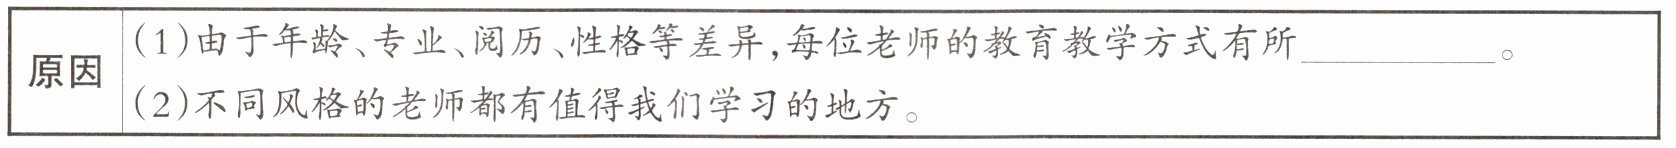 原因
(1)由于年龄、专业、阅历、性格等差异,每位老师的教育教学方式有所__________。
(2)不同风格的老师都有值得我们学习的地方。